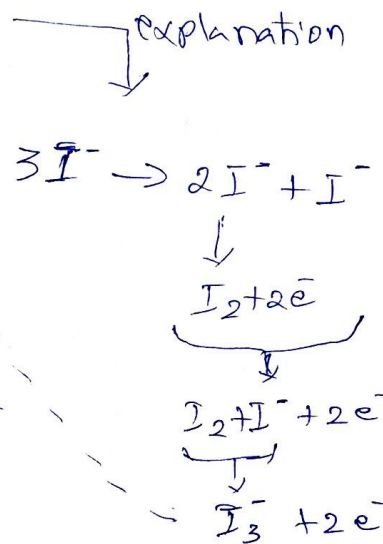 explanation
3I⁻ → 2I⁻ + I⁻
I₂ + 2e⁻
I₂ + I⁻ + 2e⁻
I₃⁻ + 2e⁻